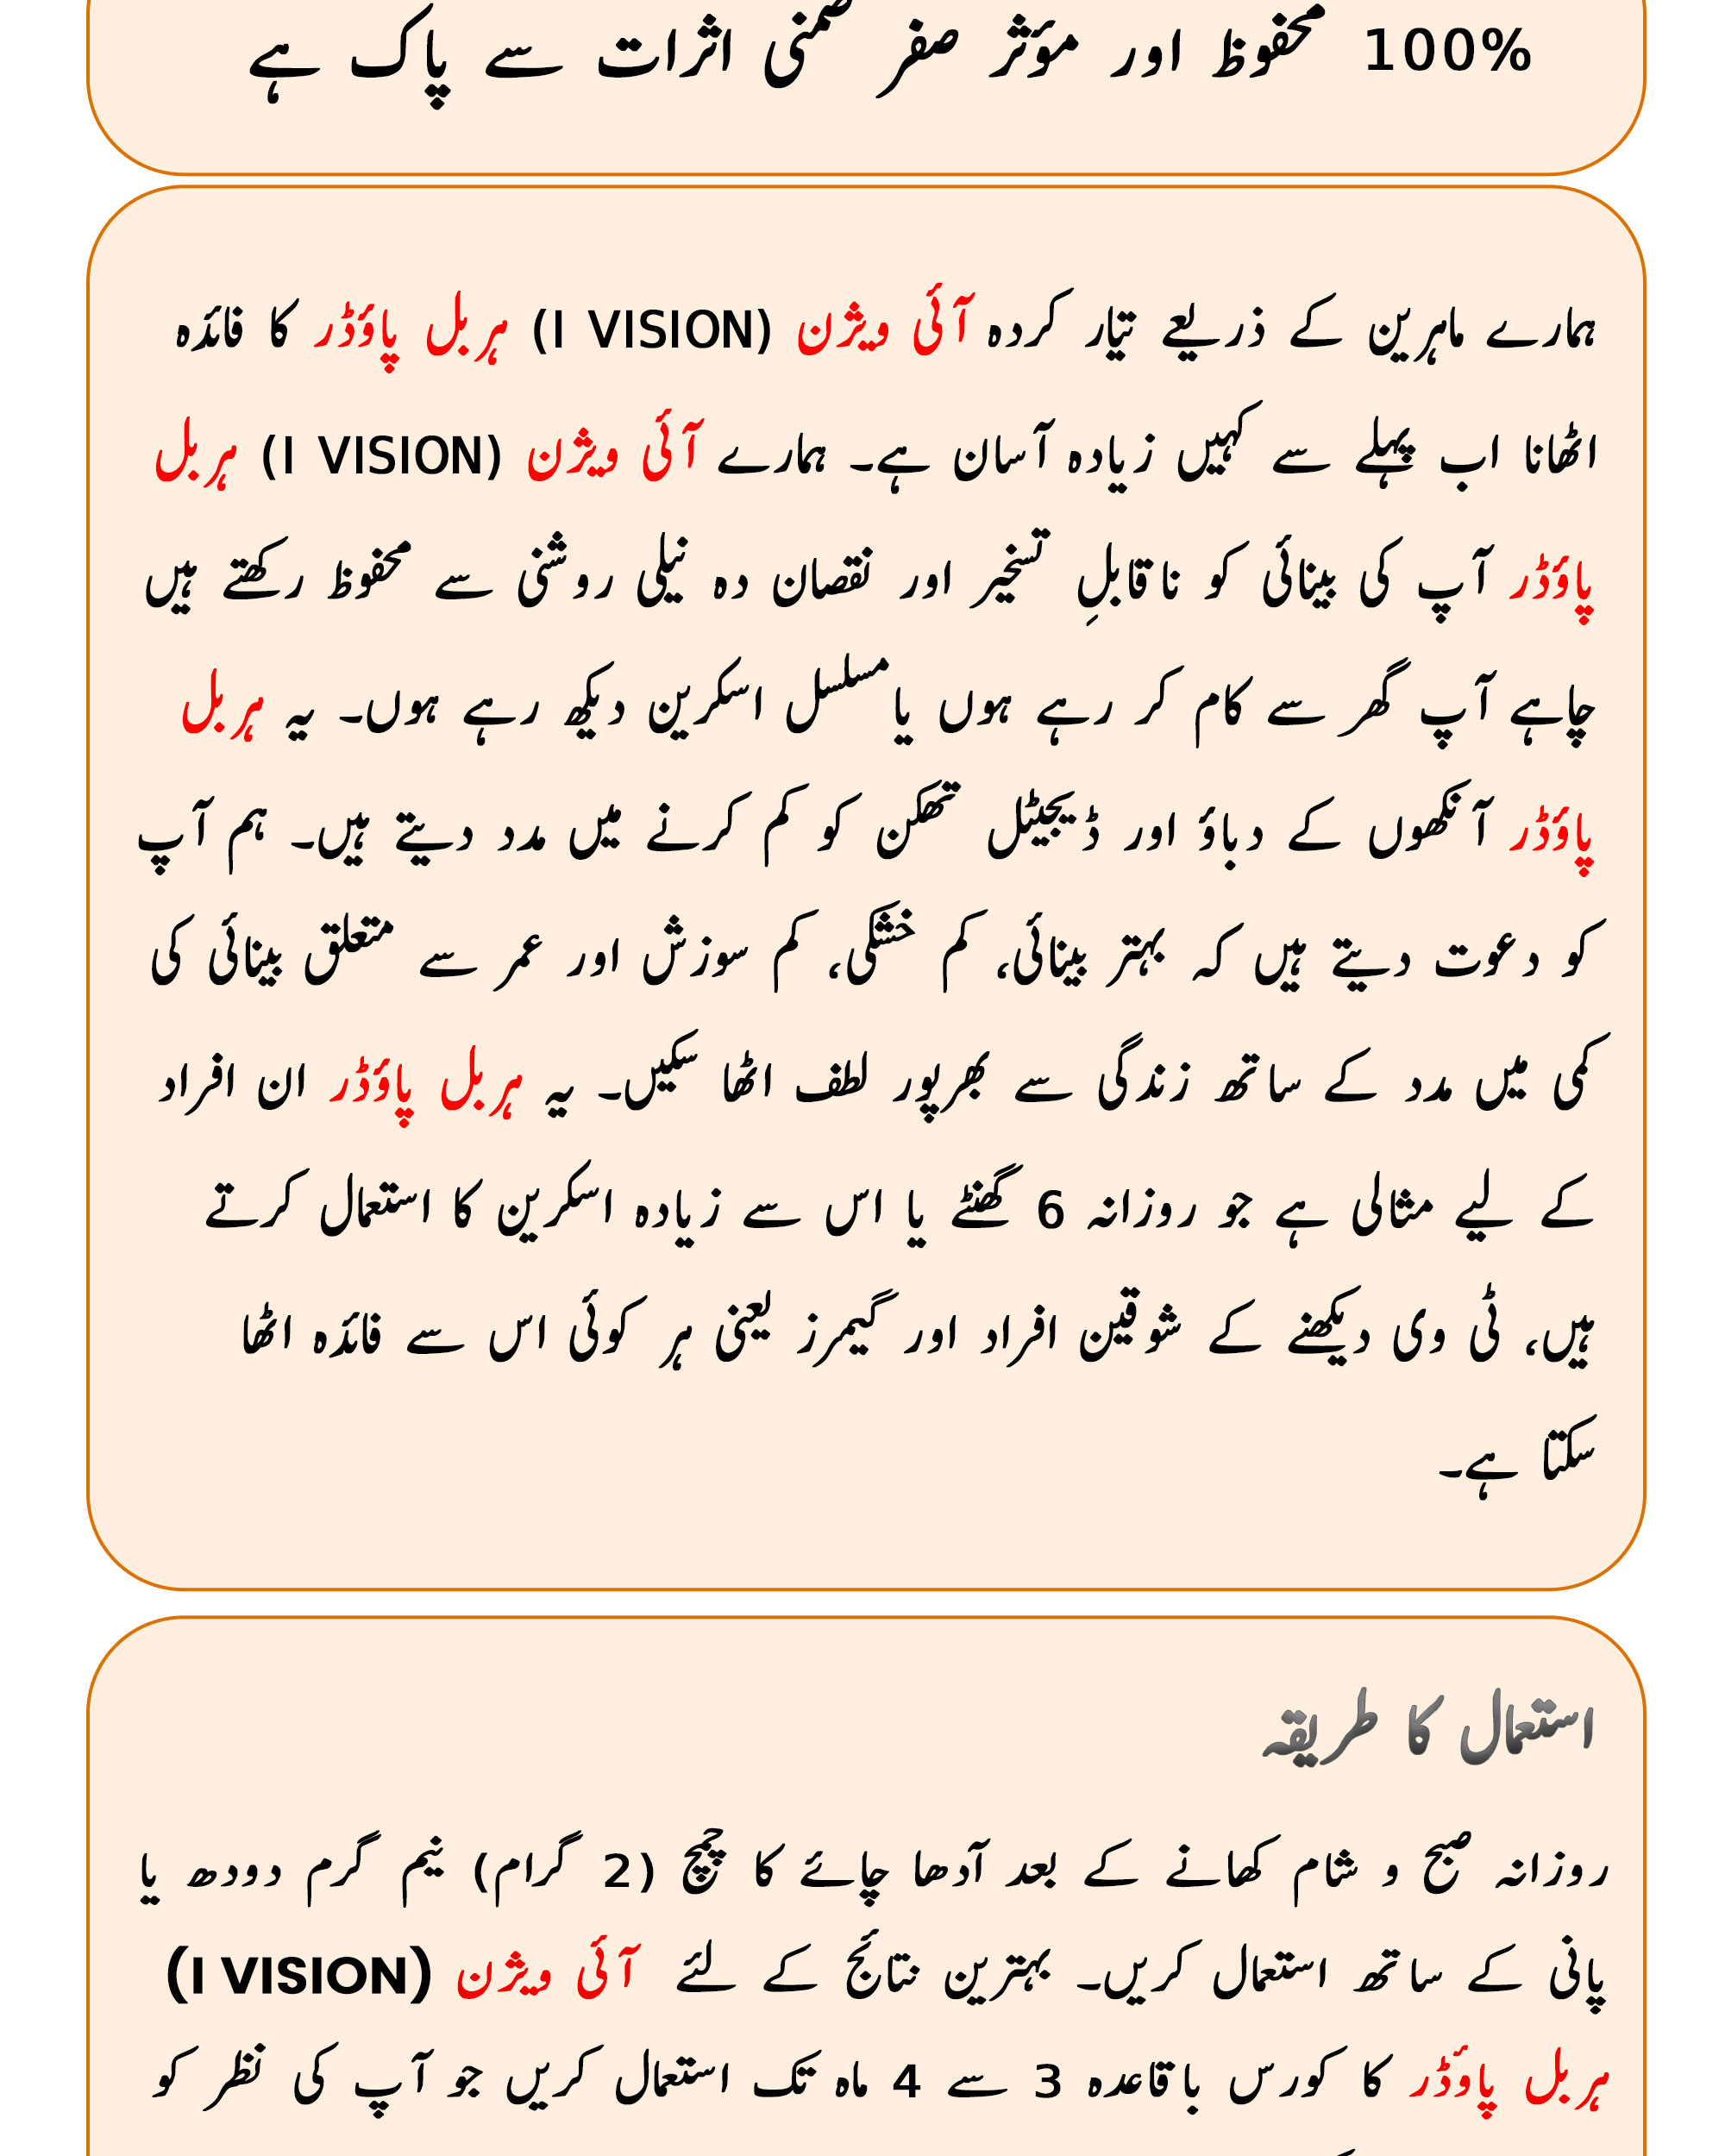 100% محفوظ اور مؤثر صفر ضمنی اثرات سے پاک ہے
ہمارے ماہرین کے ذریعے تیار کردہ آئی ویژن (I VISION) ہربل پاؤڈر کا فائدہ
اٹھانا اب پہلے سے کہیں زیادہ آسان ہے۔ ہمارے آئی ویژن (I VISION) ہربل
پاؤڈر آپ کی بینائی کو ناقابلِ تسخیر اور نقصان دہ نیلی روشنی سے محفوظ رکھتے ہیں
چاہے آپ گھر سے کام کر رہے ہوں یا مسلسل اسکرین دیکھ رہے ہوں۔ یہ ہربل
پاؤڈر آنکھوں کے دباؤ اور ڈیجیٹل تھکن کو کم کرنے میں مدد دیتے ہیں۔ ہم آپ
کو دعوت دیتے ہیں کہ بہتر بینائی، کم خشکی، کم سوزش اور عمر سے متعلق بینائی کی
کمی میں مدد کے ساتھ زندگی سے بھرپور لطف اٹھا سکیں۔ یہ ہربل پاؤڈر ان افراد
کے لیے مثالی ہے جو روزانہ 6 گھنٹے یا اس سے زیادہ اسکرین کا استعمال کرتے
ہیں، ٹی وی دیکھنے کے شوقین افراد اور گیمرز یعنی ہر کوئی اس سے فائدہ اٹھا
سکتا ہے۔
استعمال کا طریقہ
روزانہ صبح و شام کھانے کے بعد آدھا چائے کا چمچ (2 گرام) نیم گرم دودھ یا
پانی کے ساتھ استعمال کریں۔ بہترین نتائج کے لئے آئی ویژن (I VISION)
ہربل پاوٗڈر کا کورس باقاعدہ 3 سے 4 ماہ تک استعمال کریں جو آپ کی نظر کو